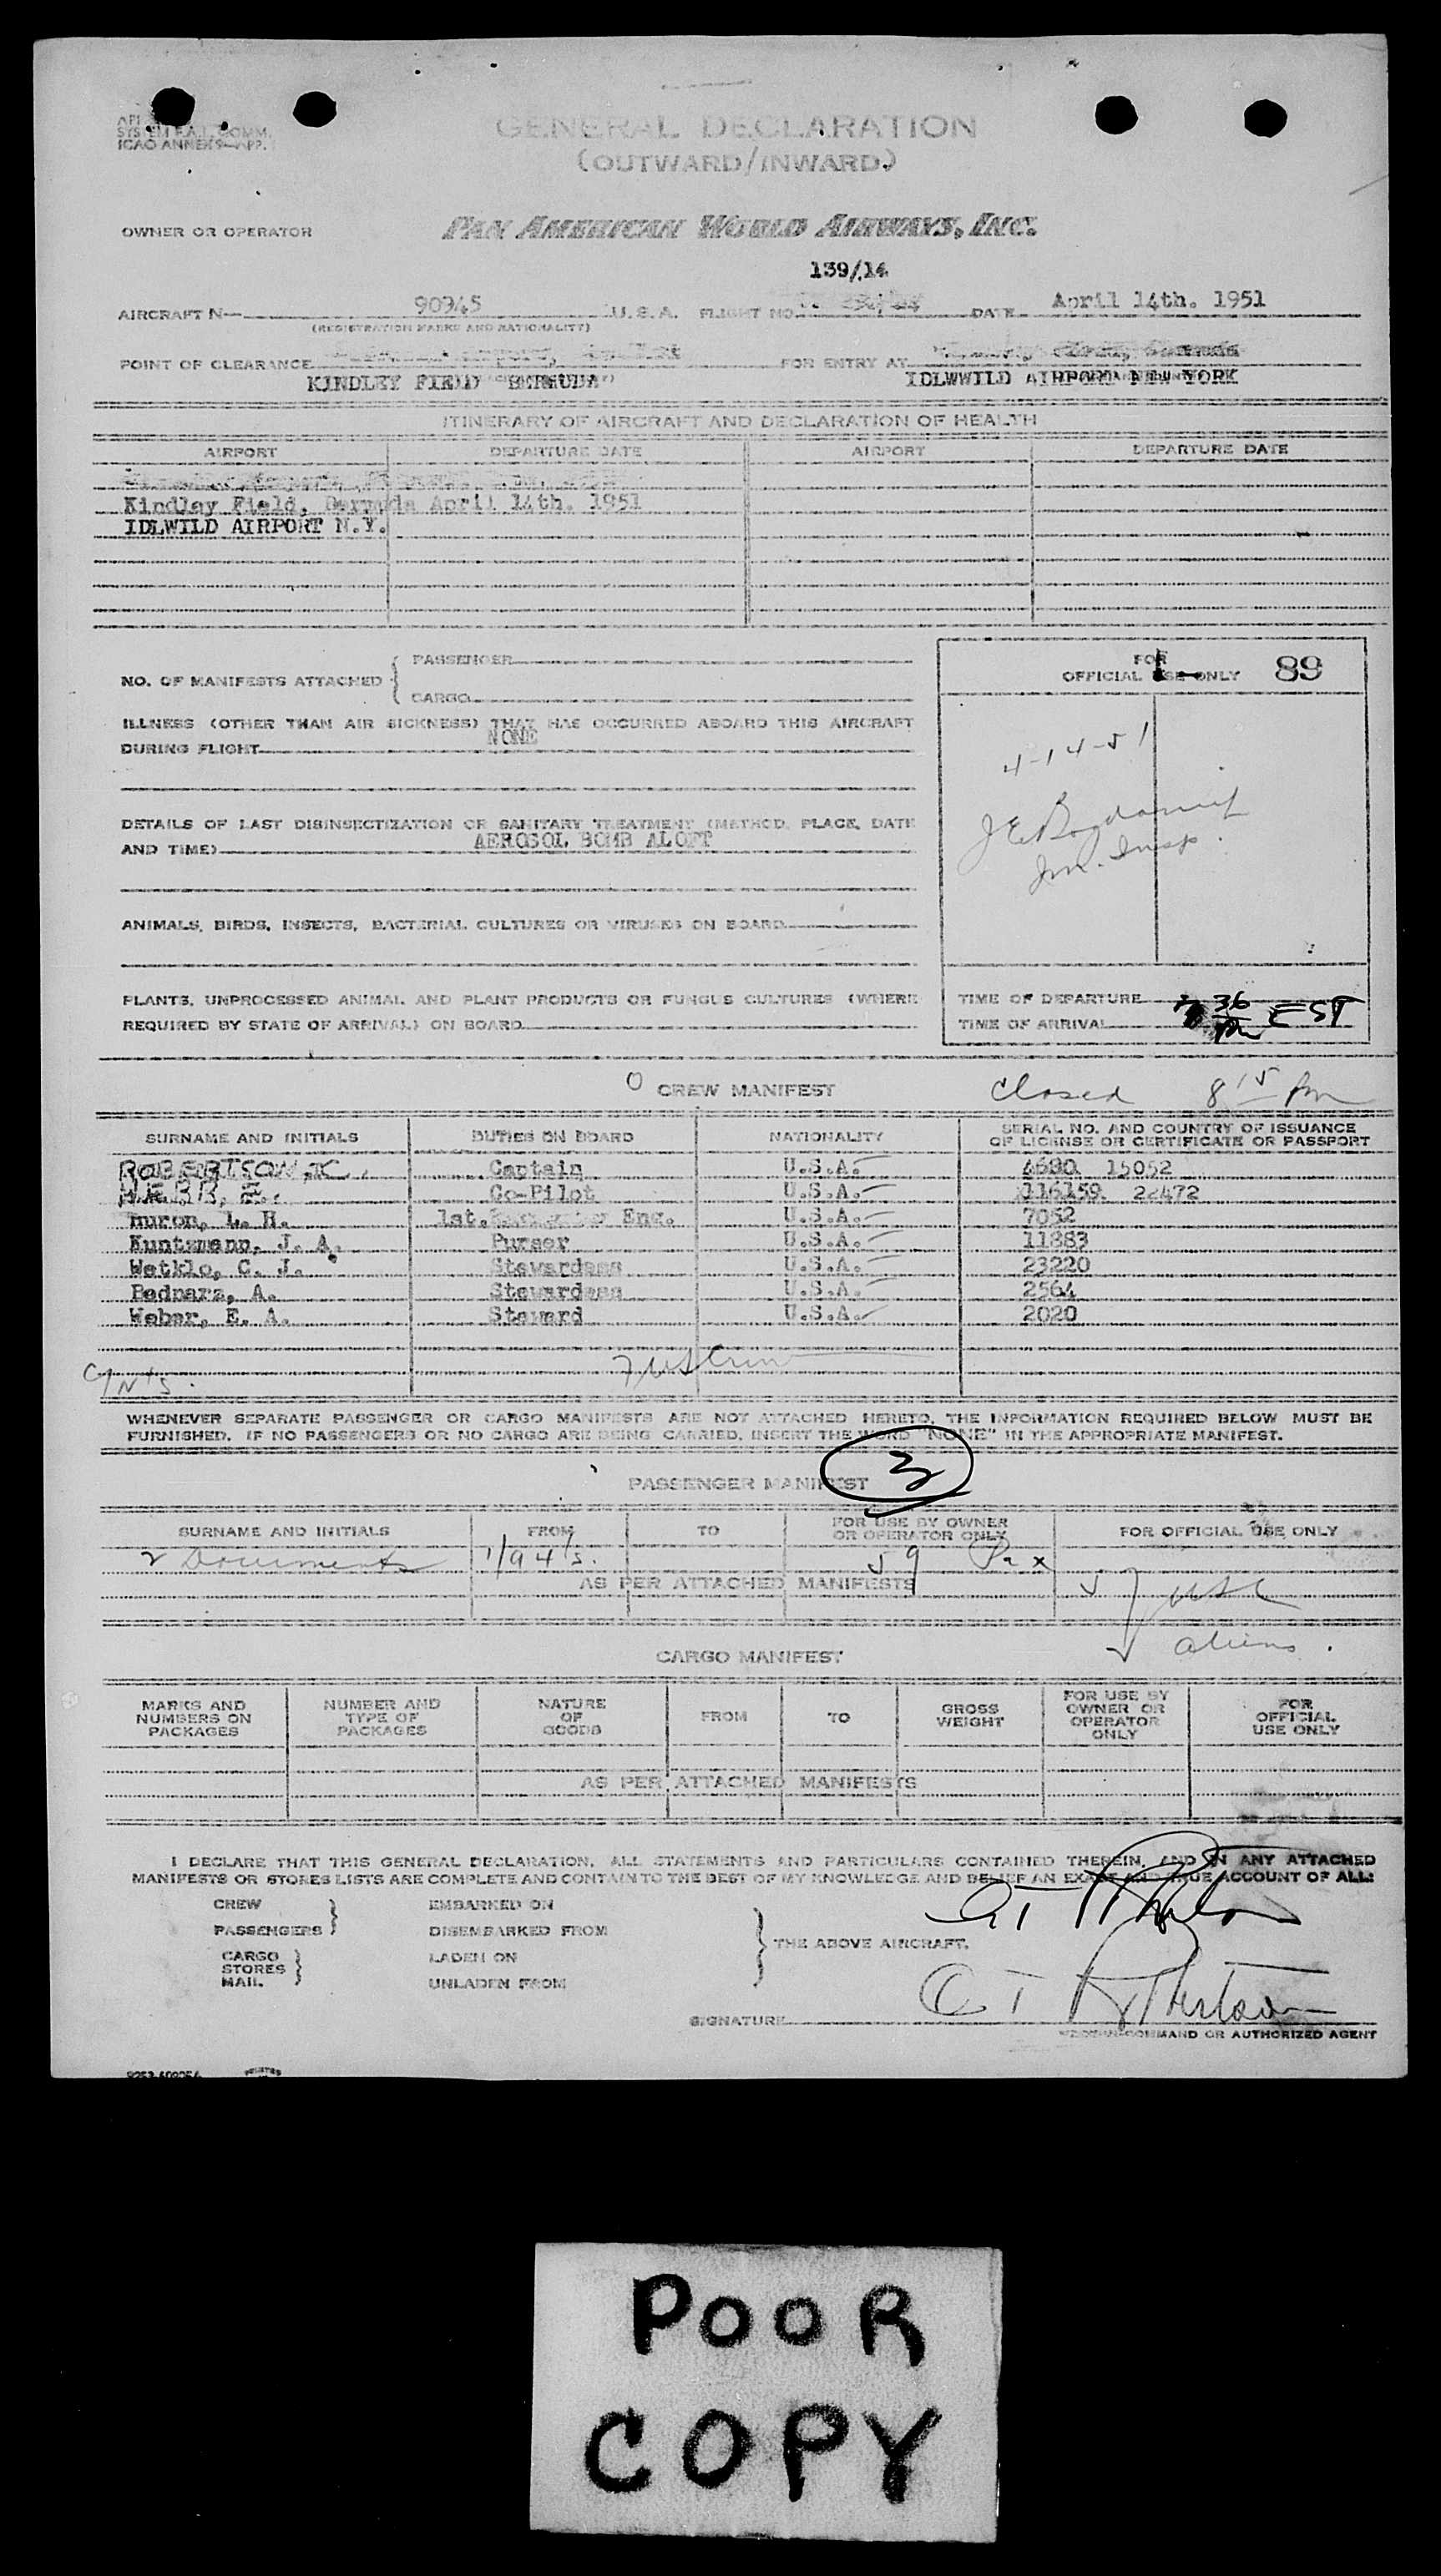 API
SYSTEM F.A.L. COMM.
ICAO ANNEX 9—APP.
GENERAL DECLARATION
(OUTWARD/INWARD)
OWNER OR OPERATOR PAN AMERICAN WORLD AIRWAYS, INC.
139/14
AIRCRAFT N— 90945 U.S.A. FLIGHT NO. DATE April 14th. 1951
(REGISTRATION MARKS AND NATIONALITY)
POINT OF CLEARANCE FOR ENTRY AT
KINDLEY FIELD BERMUDA IDLWWILD AIRPORT NEW YORK
ITINERARY OF AIRCRAFT AND DECLARATION OF HEALTH
AIRPORT DEPARTURE DATE AIRPORT DEPARTURE DATE
Kindley Field, Bermuda April 14th. 1951
IDLWILD AIRPORT N.Y.
NO. OF MANIFESTS ATTACHED { PASSENGER
CARGO
FOR
OFFICIAL USE ONLY 89
ILLNESS (OTHER THAN AIR SICKNESS) THAT HAS OCCURRED ABOARD THIS AIRCRAFT
DURING FLIGHT NONE
4-14-51
DETAILS OF LAST DISINSECTIZATION OR SANITARY TREATMENT (METHOD, PLACE, DATE
AND TIME) AEROSOL BOMB ALOFT
Im. Insp.
ANIMALS, BIRDS, INSECTS, BACTERIAL CULTURES OR VIRUSES ON BOARD
PLANTS, UNPROCESSED ANIMAL AND PLANT PRODUCTS OR FUNGUS CULTURES (WHERE
REQUIRED BY STATE OF ARRIVAL) ON BOARD
TIME OF DEPARTURE
TIME OF ARRIVAL 7 36 PM EST
CREW MANIFEST Closed 8 15 Pm
SURNAME AND INITIALS DUTIES ON BOARD NATIONALITY SERIAL NO. AND COUNTRY OF ISSUANCE
OF LICENSE OR CERTIFICATE OR PASSPORT
ROBERTSON, C. Captain U.S.A. 15052
WEBB, E. Co-Pilot U.S.A. 116159 22472
Huron, L. H. 1st. Eng. U.S.A. 7052
Kuntzmann, J. A. Purser U.S.A. 11883
Watklo, C. J. Stewardess U.S.A. 23220
Bednarz, A. Stewardess U.S.A. 2564
Weber, E. A. Steward U.S.A. 2020
7 US Crew
WHENEVER SEPARATE PASSENGER OR CARGO MANIFESTS ARE NOT ATTACHED HERETO, THE INFORMATION REQUIRED BELOW MUST BE
FURNISHED. IF NO PASSENGERS OR NO CARGO ARE BEING CARRIED, INSERT THE WORD "NONE" IN THE APPROPRIATE MANIFEST.
3
PASSENGER MANIFEST
SURNAME AND INITIALS FROM TO FOR USE BY OWNER
OR OPERATOR ONLY FOR OFFICIAL USE ONLY
2 Documents 1/94's. 59 Pax
AS PER ATTACHED MANIFESTS 57 USC
aliens.
CARGO MANIFEST
MARKS AND
NUMBERS ON
PACKAGES
NUMBER AND
TYPE OF
PACKAGES
NATURE
OF
GOODS
FROM
TO
GROSS
WEIGHT
FOR USE BY
OWNER OR
OPERATOR
ONLY
FOR
OFFICIAL
USE ONLY
AS PER ATTACHED MANIFESTS
I DECLARE THAT THIS GENERAL DECLARATION, ALL STATEMENTS AND PARTICULARS CONTAINED THEREIN, AND IN ANY ATTACHED
MANIFESTS OR STORES LISTS ARE COMPLETE AND CONTAIN TO THE BEST OF MY KNOWLEDGE AND BELIEF AN EXACT AND TRUE ACCOUNT OF ALL:
CREW
PASSENGERS } EMBARKED ON
DISEMBARKED FROM
CARGO
STORES
MAIL } LADEN ON
UNLADEN FROM
} THE ABOVE AIRCRAFT.
C T Robertson
SIGNATURE C T Robertson
COMMAND OR AUTHORIZED AGENT
POOR
COPY